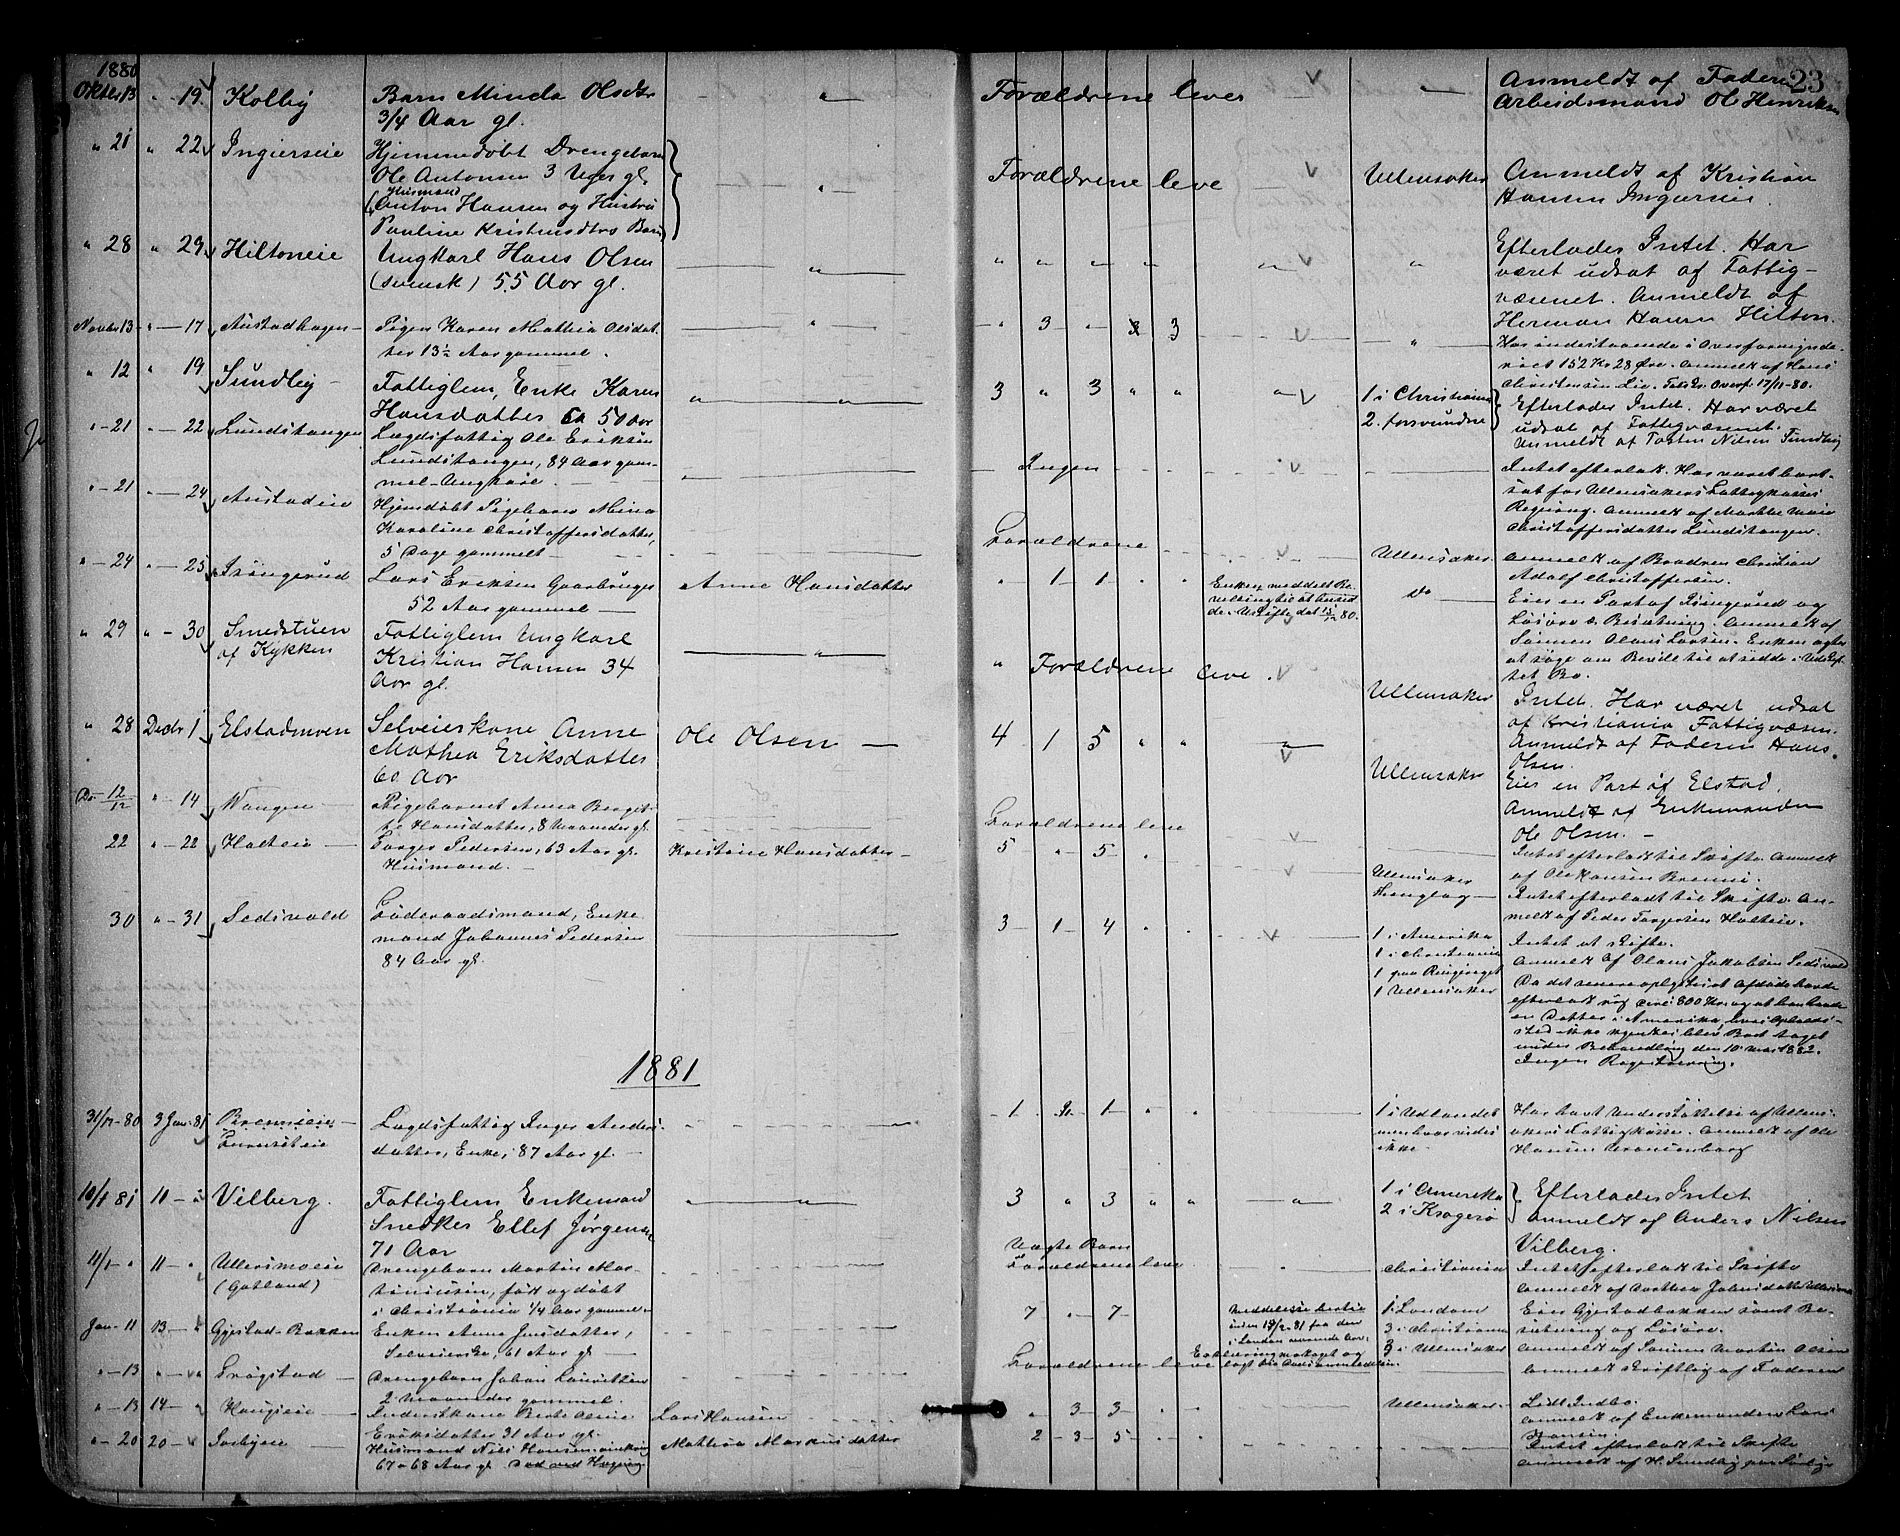 1880
23
Oktbr 13 " 19. Kolby Barn Minda Olsdtr " Forældrene lever " Anmeldt af Faderen
3/4 Aar gl. Arbeidsmand Ole Henriksen
" 21 " 22 Ingierseie Hjemmedøbt Drengebarn
Ole Antonsen 3 Uger gl. " Forældrene leve Ullensaker Anmeldt af Kristian
Husmand
(Anton Hansen og Hustru Hansen Ingierseie.
Pauline Kristensdtrs Barn)
" 28 " 29 Hiltoneie Ungkarl Hans Olsen " " " " " " " Efterlader Intet. Har
(svensk) 55 Aar gl. været udsat af Fattig-
væsenet. Anmeldt af
Herman Hansen Hilton.
Novbr 13 " 17 Austadhagen Pigen Karen Mathea Olsdat " " 3 " 3 3 "
ter 13½ Aar gammel. Har indestaaende i Overformynde-
riet 152 Kr 28 Øre. Anmeldt af Hans
Christensen Lie. 17/11-80.
" 12 " 19 Sundby Fattiglem, Enke Karen " " 3 " 3 " " " 1 i Christiania Efterlader Intet. Har været
Hansdatter ca 50 Aar 2 forsvundne udsat af Fattigvæsenet.
Anmeldt af Torsten Nilsen Sundby
" 21 " 22 Lundstangen Lægdsfattig Ole Eriksen
Lundstangen, 84 Aar gam- " Ingen Intet efterladt. Har været bort-
mel Ungkarl. sat for Ullensakers Fattigkasses
Regning. Anmeldt af Marthe Marie
Christoffersdatter Lundstangen.
" 21 " 24 Austadeie Hjemdøbt Pigebarn Mina
Karoline Christoffersdatter, Forældrene Ullensaker Anmeldt af Broderen Christian
5 Dage gammelt Adolf Christoffersen.
" 24 " 25 Isingerud Lars Eriksen Gaardbruger Anne Hansdatter " 1 1 " " Enken meddelt Be- do Eier en Part af Isingerud og
52 Aar gammel villing til at hensid Løsøre & Besætning. Anmeldt af
de i Uskifte dat 15/12 80. Sønnen Olaus Larsen. Enken agter
at søge om Bevilling til at sidde i Uskif-
tet Bo.
" 29 " 30 Smedstuen Fattiglem Ungkarl
af Kykken Kristian Hansen 34 " " Forældrene leve. Ullensaker Intet. Har været udsat
Aar gl. af Kristiania Fattigvæsen.
Anmeldt af Faderen Hans
Olsen.
" 28 Decbr 1 Elstadmoen Selveierskone Anne Ole Olsen 4 1 5 " " " Ullensaker Eier en Part af Elstad.
Mathea Eriksdatter Anmeldt af Enkemanden
60 Aar Ole Olsen.
Do 12/12 " 14 Wangen Pigebarnet Anna Berget- Forældrene leve Intet efterladt til Skifte. Anmeldt
te Hansdatter, 8 Maaneder gl. af Ole Hansen
22 " 22 Holteie Torger Pedersen, 63 Aar gl. Kristine Hansdatter 5 " 5 " Ullensaker Intet efterladt til Skifte. An-
Husmand. meldt af Peder Torgersen Holteie.
30 " 31 Ledsvold Føderaadsmand, Enke 3 1 4 " " 1 i Amerika Intet at skifte.
mand Johannes Pedersen 1 i Christiania Anmeldt af Olaus Jakobsen
84 Aar gl. 1 paa Ringeriget Da det senere oplystes at Afdøde havde
1 Ullensaker efterladt sig circa 800 Kr. og at han havde
en Datter i Amerika hvis Opholds-
sted ikke kjendtes blev Boet taget
under Behandling den 10 Mai 1882.
Ingen Registrering.
1881
31/12-80 3 Jan 81 Brennieie Lægdsfattig Inger Anders- 1 " 1 " " 1 i Udlandet Har havt Understøttelse af Ullens-
Furusetseie datter, Enke, 87 Aar gl. men hvor vides akers Fattigkasse. Anmeldt af Ole
ikke. Hansen
10/1 81 11 " Vilberg. Fattiglem Enkemand " " 3 " 3 " " " 1 i Amerika Efterlader Intet
Snedker Ellef Jørgensen 2 i Kragerø Anmeldt af Anders Nilsen
71 Aar Vilberg.
11/1 " 11 " Ullerimoeie Drengebarn Martin Mar- Uægte Barn Christiania Intet efterladt til Skifte
(Gotland) tiniusen, født og døbt Forældrene leve " Anmeldt af
i Christiania 1/4 Aar gammel
Jan 11 13 " Gjestad-Bakken Enken Anne Jensdatter, 7 " 7 1 i London Eier Gjestadbakken samt Be-
Selveierske, 61 Aar gl. i London 3 i Christiania sætning og Løsøre.
3 i Ullensaker Anmeldt af Sønnen Martin Olsen
" 13 " " Frogstad Drengebarn Johan Lauritsen Forældrene leve Anmeldt skriftlig af Faderen
2 Maaneder gammel.
" 13 14 " Haugseie Inderstkone Berte Oline Lars Hansen " 3 3 " " Ullensaker Lidt Indbo.
Eriksdatter 31 Aar gl. Anmeldt af Enkemanden Lars
Hansen.
" 20 20 " Sørbyeie Husmand Nils Hansen Mathea Markusdatter 2 3 5 Intet efterladt til Skifte
67 a 68 Aar gl. Anmeldt af H. Sundby paa Sørby